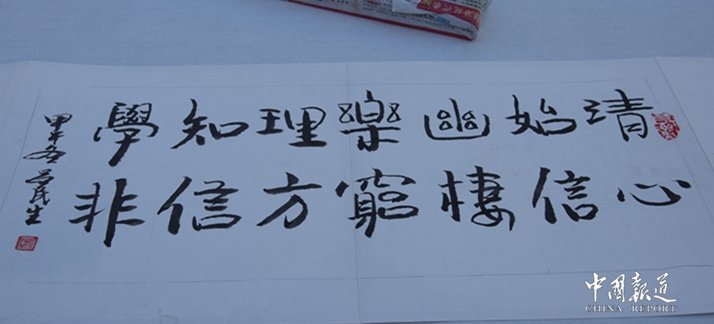 清心
始信
幽棲
樂窮
理方
知俗
學非
甲午冬 吴民生
中国報道
CHINA REPORT